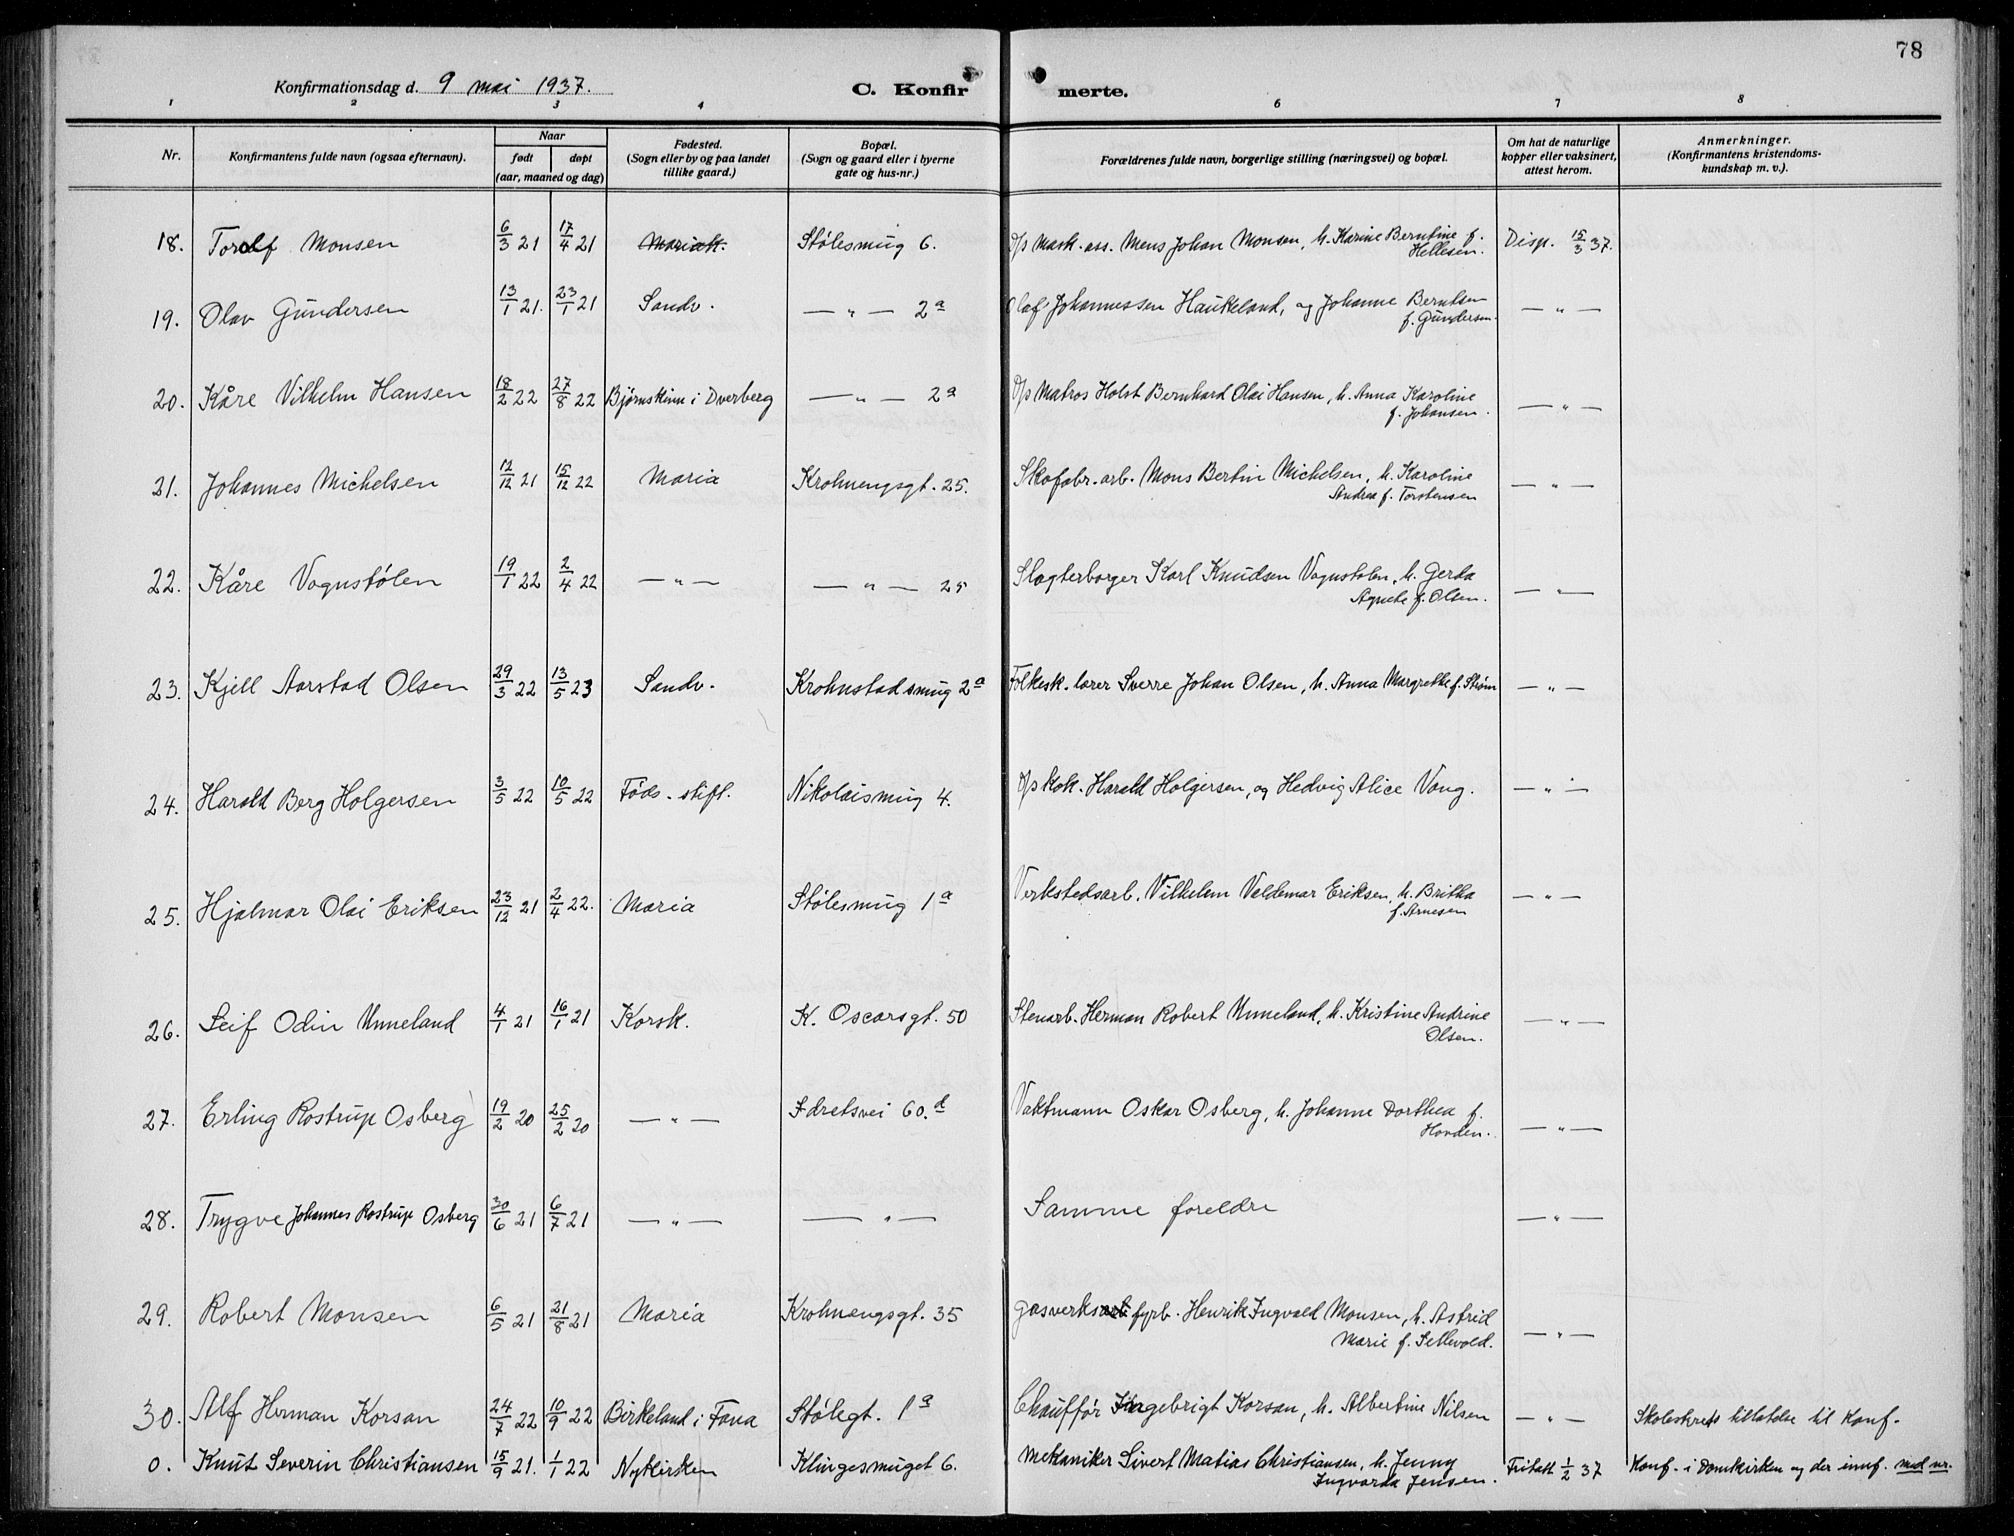 78
Konfirmationsdag d. 9 mai 1937.
C. Konfirmerte.
1 2 3 4 6 7 8
Nr. Konfirmantens fulde navn (ogsaa efternavn). Naar født døpt (aar, maaned og dag) Fødested. (Sogn eller by og paa landet tillike gaard.) Bopæl. (Sogn og gaard eller i byerne gate og hus-nr.) Forældrenes fulde navn, borgerlige stilling (næringsvei) og bopæl. Om hat de naturlige kopper eller vaksinert, attest herom. Anmerkninger. (Konfirmantens kristendoms- kundskap m. v.).
18. Toralf Monsen 6/3 21 17/4 21 Mariak. Stølesmug 6. D/s Mask. ass. Mons Johan Monsen, h. Karine Berntine f. Hellesen. Disp. 15/3 37.
19. Olav Gundersen 13/1 21. 23/1 21 Sandv. — " — 2a Olaf Johannessen Haukeland, og Johanne Berntsen f. Gundersen. — " —
20. Kåre Vilhelm Hansen 18/2 22 27/8 22 Bjørnskinn i Dverberg — " — 2a D/s Matros Holst Bernhard Olai Hansen, h. Anna Karoline f. Johansen. — " —
21. Johannes Michelsen 12/12 21 15/12 22 Maria Krohnengsgt. 25. Skofabr. arb. Mons Bertin Michelsen, h. Karoline Andrea f. Torstensen — " —
22. Kåre Vognstølen 19/1 22 2/4 22 — " — — " — 25 Slagterborger Karl Knudsen Vognstølen, h. Gerda Agnete f. Olsen. — " —
23. Kjell Aarstad Olsen 29/3 22 13/5 23 Sandv. Krohnstadsmug 2a Folkesk. lærer Sverre Johan Olsen, h. Anna Margrethe f. Strøm — " —
24. Harald Berg Holgersen 3/5 22 10/5 22 Føds. stift. Nikolaismug 4. D/s Kok. Harald Holgersen, og Hedvig Alice Vang. — " —
25. Hjalmar Olai Eriksen 23/12 21 2/4 22. Maria Stølesmug 1a Verkstedsarb. Vilhelm Valdemar Eriksen, h. Britha f. Arnesen — " —
26. Leif Odin Unneland 4/1 21 16/1 21 Korsk. K. Oscarsgt. 50 Stenarb. Herman Robert Unneland, h. Kristine Andrine Olsen. — " —
27. Erling Rostrup Osberg 19/2 20 25/2 20 — " — Idretsvei 60.d Vaktmann Oskar Osberg, h. Johanne Dorthea f. Hovden. — " —
28. Trygve Johannes Rostrup Osberg 30/6 21 6/7 21 — " — — " — Samme foreldre — " —
29. Robert Monsen 6/5 21 21/8 21 Maria Krohnengsgt. 35 Gasverksarb. fyrb. Henrik Ingvald Monsen, h. Astrid Marie f. Sellevold. — " —
30. Alf Herman Korsan 24/7 22 10/9 22 Birkeland i Fana Stølegt. 1a Chauffør Ingebrigt Korsan, h. Albertine Nilsen — " — Skolestyrets tillatelse til Konf.
0. Knut Severin Christiansen 15/9 21. 1/1 22 Nykirken Klingesmuget 6. Mekaniker Sivert Matias Christiansen, h. Jenny Ingvarda Jensen. Fritatt 1/2 37 Konf. i Domkirken og der innf. med nr.